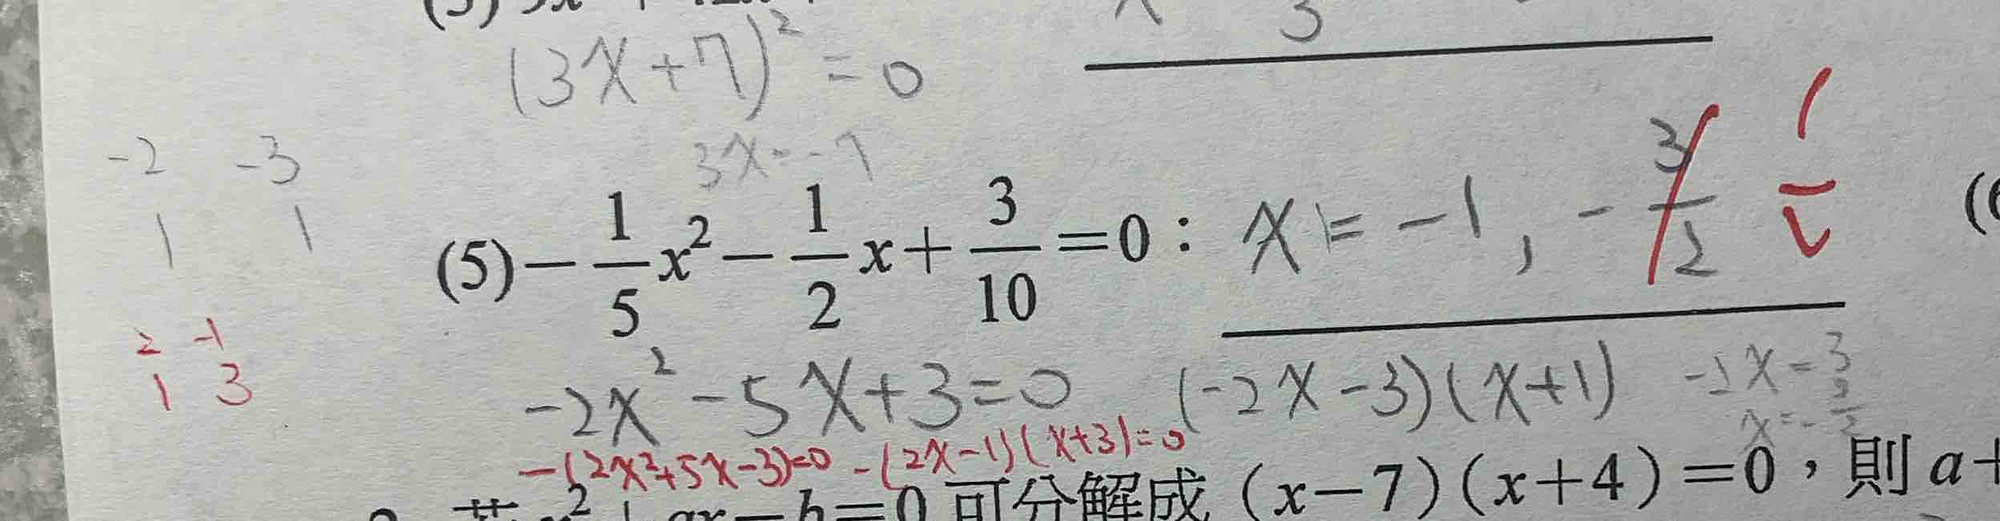 (3x+7)²=0
3
3x=-7
-2 -3
1 1
(5) -\frac{1}{5}x²-\frac{1}{2}x+\frac{3}{10}=0：x=-1, -\frac{3}{2} \frac{1}{2}
2 -1
1 3
-2x²-5x+3=0 (-2x-3)(x+1) -2x=3
x=-\frac{3}{2}
-(2x²+5x-3)=0 -(2x-1)(x+3)=0
可分解成 (x-7)(x+4)=0，則a+